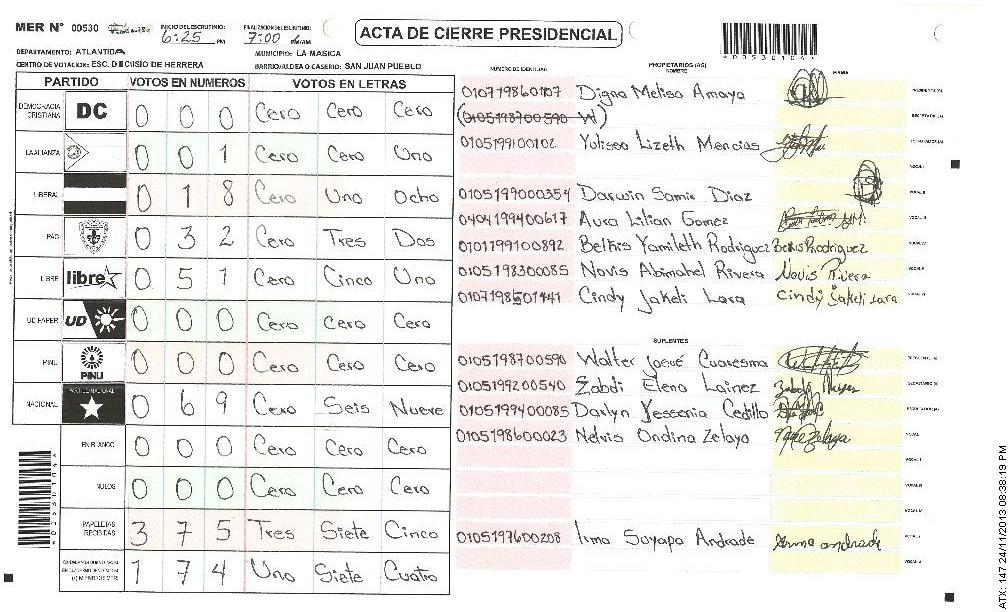 MER N° 00530 INICIO DEL ESCRUTINIO: 6:25 PM FINALIZACION DEL ESCRUTINIO: 7:00 PM/AM
ACTA DE CIERRE PRESIDENCIAL
*0053010A*
DEPARTAMENTO: ATLANTIDA MUNICIPIO: LA MASICA
CENTRO DE VOTACION: ESC. DIONISIO DE HERRERA BARRIO/ALDEA O CASERIO: SAN JUAN PUEBLO
PARTIDO VOTOS EN NUMEROS VOTOS EN LETRAS
DEMOCRACIA CRISTIANA DC 0 0 0 Cero Cero Cero
LA ALIANZA 0 0 1 Cero Cero Uno
LIBERAL 0 1 8 Cero Uno Ocho
PAC 0 3 2 Cero Tres Dos
LIBRE libre 0 5 1 Cero Cinco Uno
UD-FAPER UD 0 0 0 Cero Cero Cero
PINU PINU 0 0 0 Cero Cero Cero
NACIONAL PARTIDO NACIONAL 0 6 9 Cero Seis Nueve
EN BLANCO 0 0 0 Cero Cero Cero
NULOS 0 0 0 Cero Cero Cero
PAPELETAS RECIBIDAS 3 7 5 Tres Siete Cinco
1 7 4 Uno Siete Cuatro
NUMERO DE IDENTIDAD PROPIETARIOS (AS) NOMBRE FIRMA
0107198601107 Digna Melisa Amaya PRESIDENTE (A)
(0105198700590 W) SECRETARIO (A)
0105199100102 Yulissa Lizeth Mencias ESCRUTADOR (A)
VOCAL I
0105199000354 Darwin Samir Diaz VOCAL II
0404199400617 Aura Lilian Gomez VOCAL III
0101199100892 Belkis Yamileth Rodriguez Belkis Rodriguez VOCAL IV
0105198300085 Novis Abimahel Rivera Novis Rivera VOCAL V
0107198501441 Cindy Jakeli Lara Cindy Jakeli Lara VOCAL VI
SUPLENTES
0105198700590 Walter Josué Cuaresma PRESIDENTE (A)
0105199200540 Zabdi Elena Lainez SECRETARIO (A)
0105199400085 Darlyn Yessenia Cedillo ESCRUTADOR (A)
0105198600023 Nelvis Ondina Zelaya VOCAL I
VOCAL II
VOCAL III
VOCAL IV
0105197600208 Irma Suyapa Andrade Irma andrade VOCAL V
VOCAL VI
ATX: 147 24/11/2013 08:38:19 PM